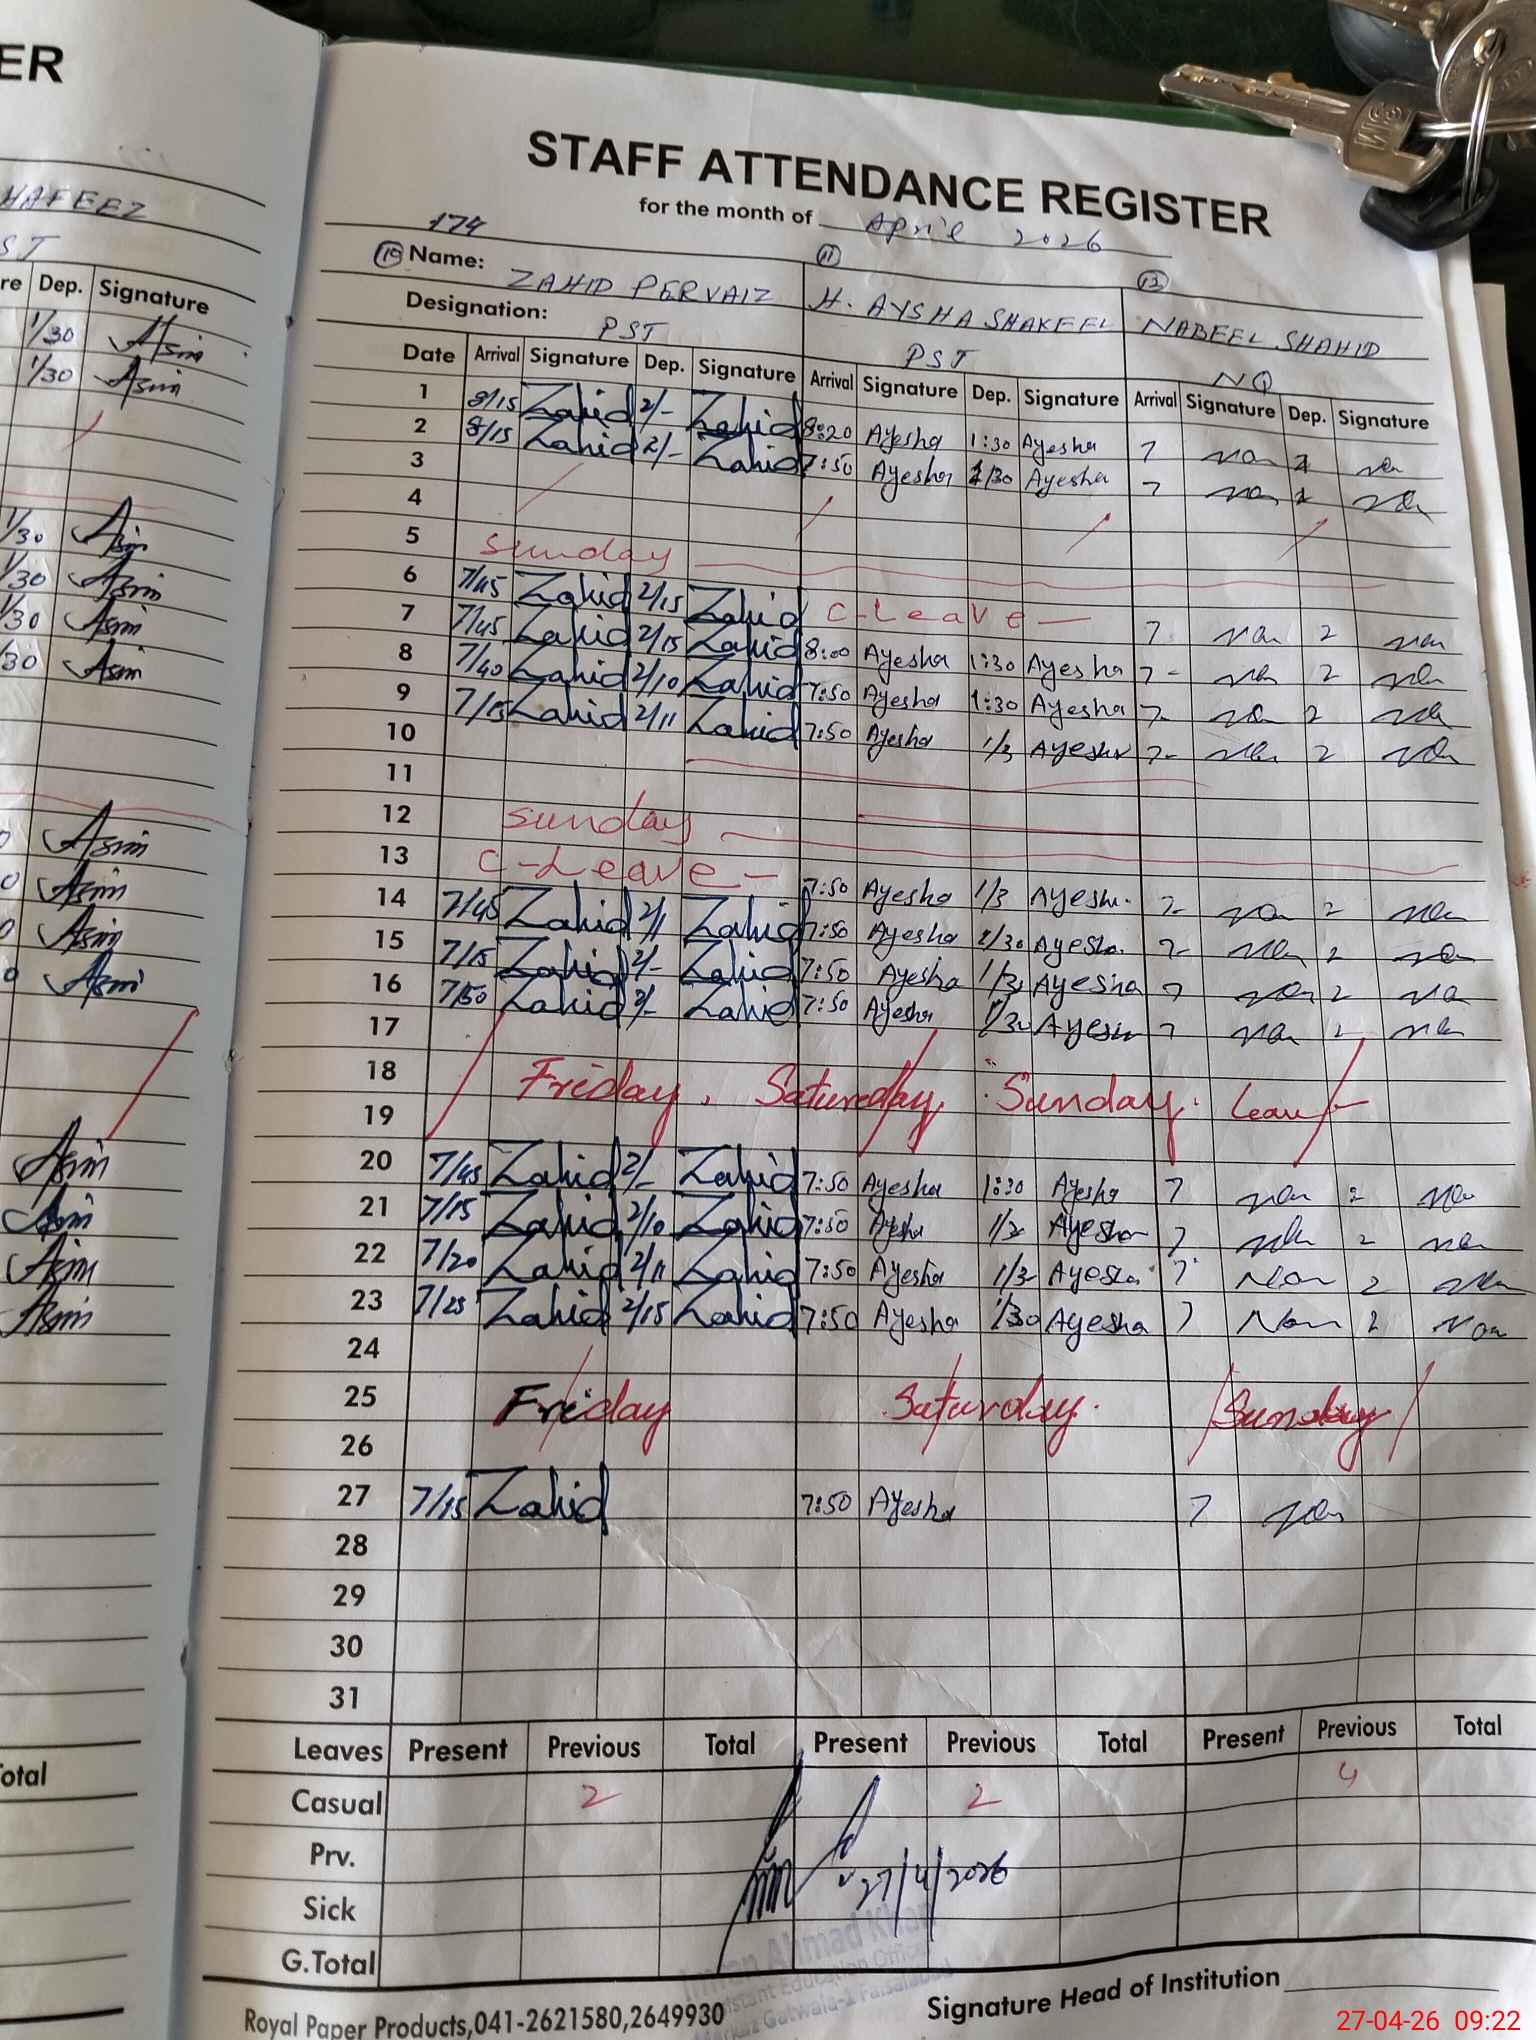 ER
HAFEEZ
ST
re Dep. Signature
1/30 Asim
1/30 Asim
1/30 Asim
1/30 Asim
1/30 Asim
/30 Asim
Asim
Asim
Asim
Asim
Asim
Asim
Asim
Asim
Total
STAFF ATTENDANCE REGISTER
for the month of April 2026
174
10 Name: ZAHID PERVAIZ 11 H. AYSHA SHAKEEL 12 NABEEL SHAHID
Designation: PST PST NQ
Date Arrival Signature Dep. Signature Arrival Signature Dep. Signature Arrival Signature Dep. Signature
1 8/15 Zahid 2/- Zahid 8:20 Ayesha 1:30 Ayesha 7
2 8/15 Zahid 2/- Zahid 7:50 Ayesha 1/30 Ayesha 7
3
4
5 Sunday
6 7/45 Zahid 2/15 Zahid C-Leave — 7 2
7 7/45 Zahid 2/15 Zahid 8:00 Ayesha 1:30 Ayesha 7- 2
8 7/40 Zahid 2/10 Zahid 7:50 Ayesha 1:30 Ayesha 7- 2
9 7/15 Zahid 2/11 Zahid 7:50 Ayesha 1/3 Ayesha 7- 2
10
11
12 Sunday
13 C-Leave — 7:50 Ayesha 1/3 Ayesha 7- 2
14 7/45 Zahid 2/11 Zahid 7:50 Ayesha 1/30 Ayesha 7- 2
15 7/15 Zahid 2/- Zahid 7:50 Ayesha 1/3 Ayesha 7 2
16 7/50 Zahid 2/- Zahid 7:50 Ayesha 1/30 Ayesha 7 2
17
18 Friday, Saturday, Sunday. Leave
19
20 7/45 Zahid 2/- Zahid 7:50 Ayesha 1:30 Ayesha 7 2
21 7/15 Zahid 2/10 Zahid 7:50 Ayesha 1/3 Ayesha 7 2
22 7/20 Zahid 2/11 Zahid 7:50 Ayesha 1/3 Ayesha 7 2
23 7/25 Zahid 2/15 Zahid 7:50 Ayesha 1/30 Ayesha 7 2
24
25 Friday Saturday. Sunday
26
27 7/15 Zahid 7:50 Ayesha 7
28
29
30
31
Leaves Present Previous Total Present Previous Total Present Previous Total
Casual 2 2 4
Prv.
Sick
27/4/2026
G.Total
Ahmad Khan
Assistant Education Officer
Markaz Gatwala-2 Faisalabad
Royal Paper Products,041-2621580,2649930
Signature Head of Institution
27-04-26 09:22